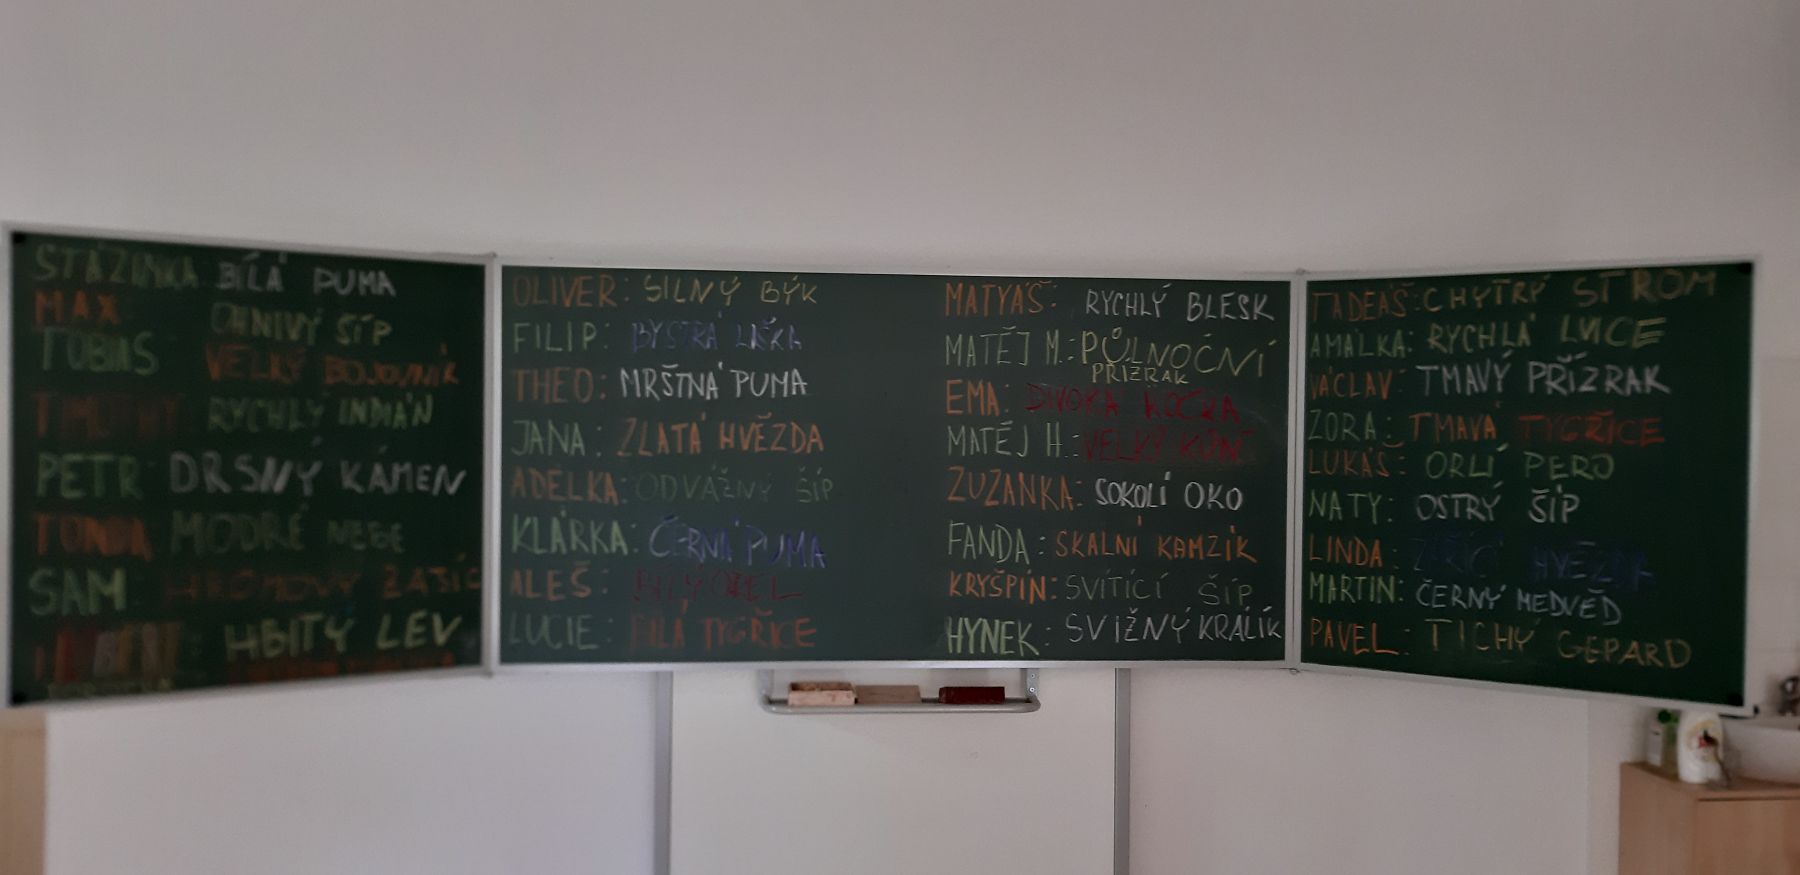 STÁZINKA BÍLÁ PUMA
MAX: OHNIVÝ ŠÍP
TOBIAS VELKÝ BOJOVNÍK
TIMOTHY RYCHLÝ INDIÁN
PETR DRSNÝ KÁMEN
TONDA MODRÉ NEBE
SAM: HROMOVÝ ZAJÍC
HBITÝ LEV
OLIVER: SILNÝ BÝK
FILIP: BYSTRÁ LIŠKA
THEO: MRŠTNÁ PUMA
JANA: ZLATÁ HVĚZDA
ADÉLKA: ODVÁŽNÝ ŠÍP
KLÁRKA: ČERNÁ PUMA
ALEŠ: BÍLÝ OREL
LUCIE: BÍLÁ TYGŘICE
MATYÁŠ: RYCHLÝ BLESK
MATĚJ M.: PŮLNOČNÍ
PŘÍZRAK
EMA: DIVOKÁ KOČKA
MATĚJ H.: VELKÝ KŮŇ
ZUZANKA: SOKOLÍ OKO
FANDA: SKALNÍ KAMZÍK
KRYŠPÍN: SVÍTÍCÍ ŠÍP
HYNEK: SVIŽNÝ KRÁLÍK
TADEÁŠ: CHYTRÝ STROM
AMÁLKA: RYCHLÁ LVICE
VÁCLAV: TMAVÝ PŘÍZRAK
ZORA: TMAVÁ TYGŘICE
LUKÁŠ: ORLÍ PERO
NATY: OSTRÝ ŠÍP
LINDA: ZÁŘÍCÍ HVĚZDA
MARTIN: ČERNÝ MEDVĚD
PAVEL: TICHÝ GEPARD